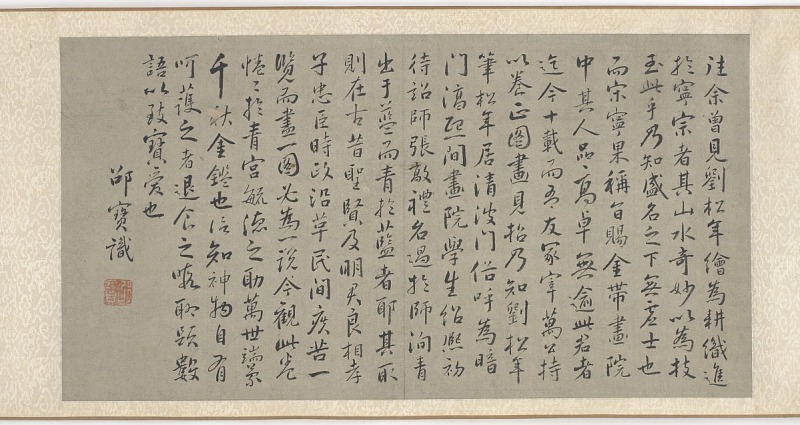 往余曾見劉松年繪為耕織進
於寧宗者其山水奇妙以為技
至此乎乃知盛名之下無虛士也
而宋寧果稱旨賜金帶畫院
中其人品高卓無逾此君者
迄今十載而吾友冢宰萬公持
以卷正圖畫見招乃知劉松年
筆松年居清波門俗呼為暗
門滴孤間畫院學生紹熙初
待詔師張敦禮名過於師洵青
出于藍而青於藍者耶其取
則在古昔聖賢及明君良相孝
子忠臣時政沿革民間疾苦一
覽而盡一圖必為一說今觀此卷
惓惓於青宮毓德之助萬世端蒙
千秋金鑑也信知神物自有
呵護之者退食之暇聊題數
語以致寶愛也
邵寶識